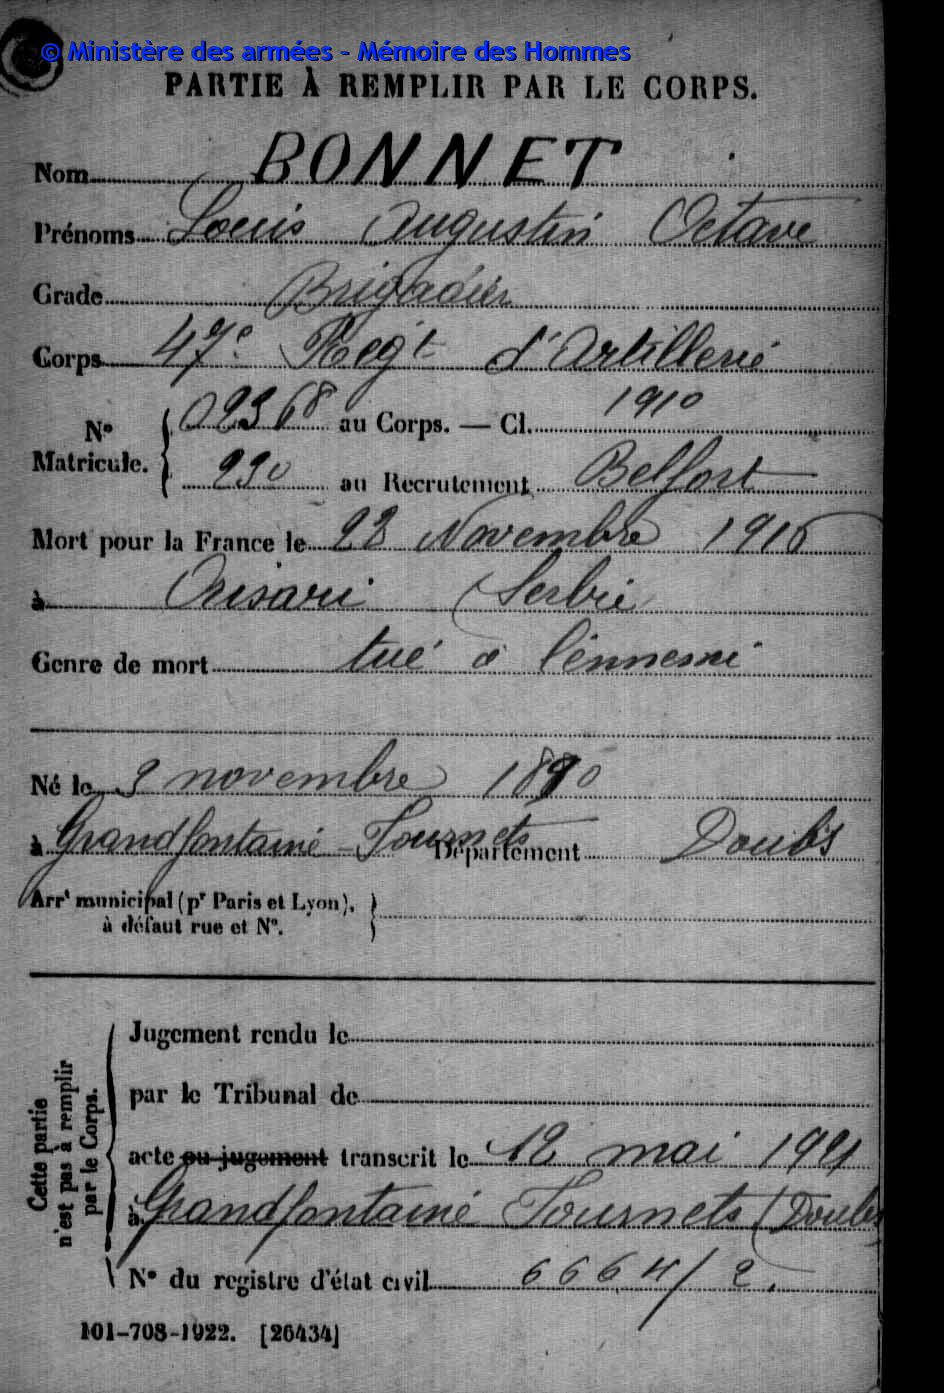 © Ministère des armées - Mémoire des Hommes
PARTIE À REMPLIR PAR LE CORPS.
Nom BONNET
Prénoms Louis Augustin Octave
Grade Brigadier
Corps 47e Regt d'Artillerie
No Matricule. 02368 au Corps. — Cl. 1910
230 au Recrutement Belfort
Mort pour la France le 22 Novembre 1916
à Orisari Serbie
Genre de mort tué à l'ennemi
Né le 3 novembre 1890
à Grandfontaine - Fournets Département Doubs
Arrt municipal (pr Paris et Lyon),
à défaut rue et N°.
Cette partie
n'est pas à remplir
par le Corps.
Jugement rendu le
par le Tribunal de
acte ou jugement transcrit le 12 mai 1921
à Grandfontaine Fournets (Doubs
N° du registre d'état civil 6664/2.
101-708-1922. [26434]